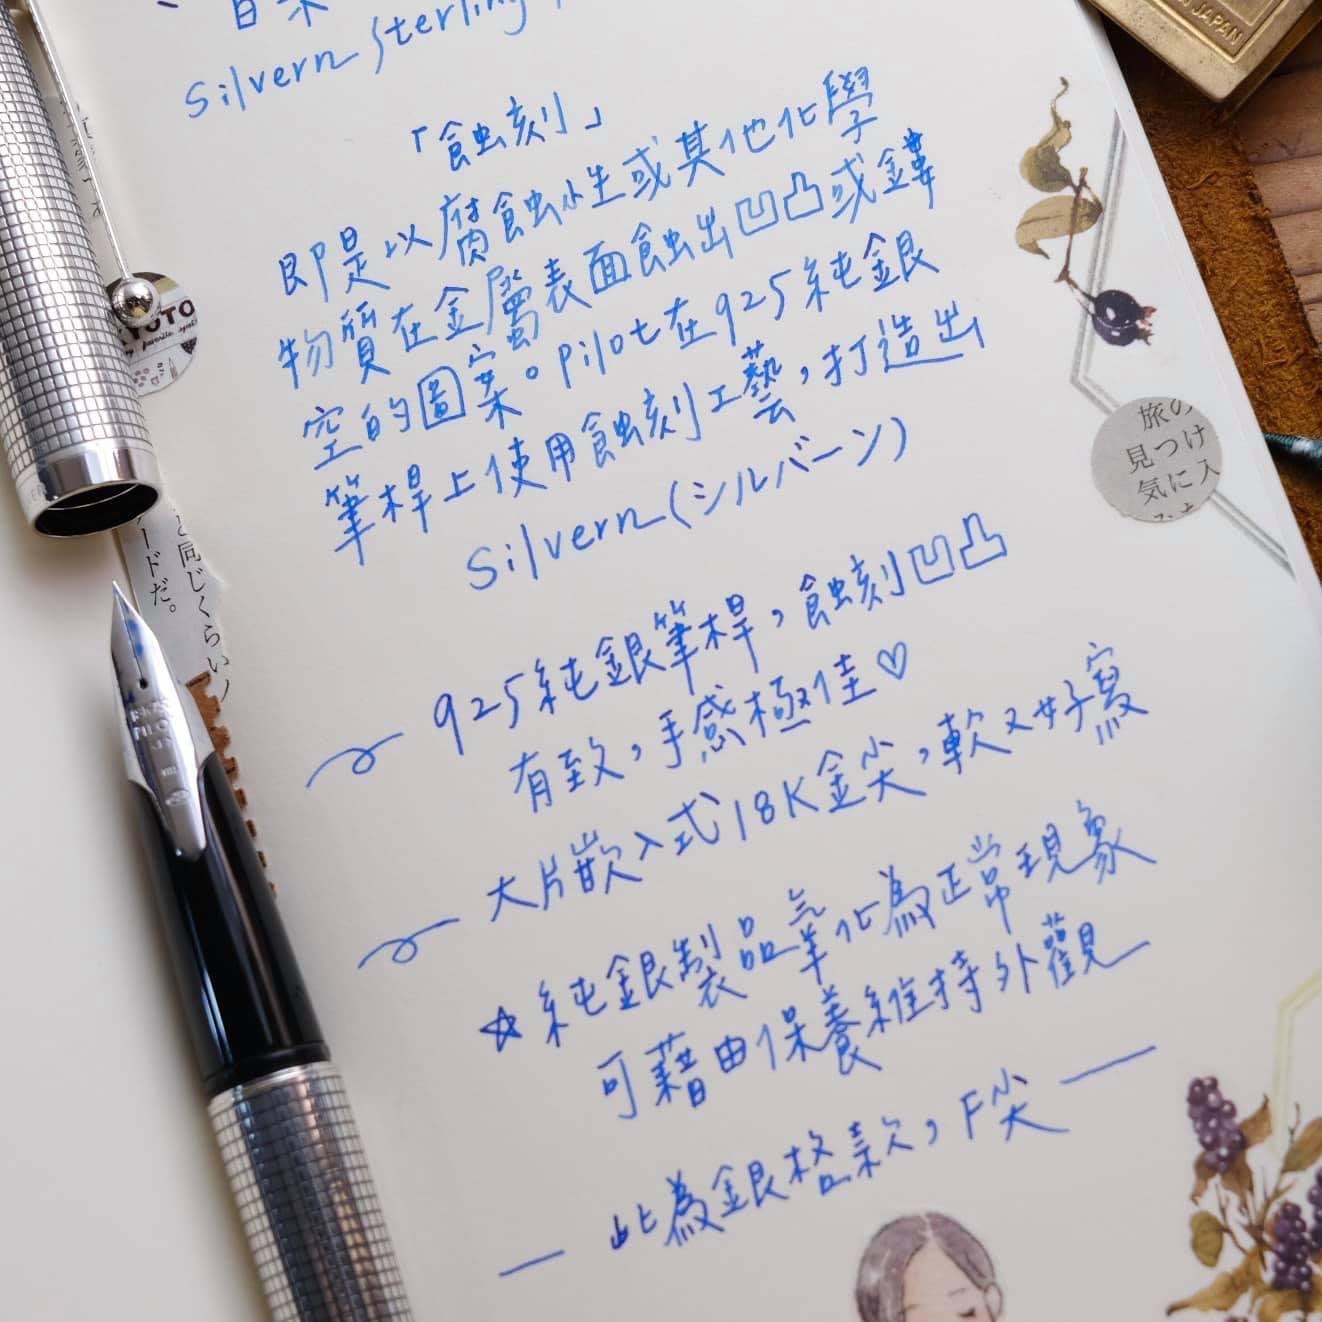 Silvern Sterling
「蝕刻」
即是以腐蝕性或其他化學
物質在金屬表面蝕出凹凸或鏤
空的圖案。pilot在925純銀
筆桿上使用蝕刻工藝，打造出
Silvern(シルバーン)
925純銀筆桿，蝕刻凹凸
有致，手感極佳♡
大片嵌入式18K金尖，軟又好寫
☆純銀製品氧化為正常現象
可藉由保養維持外觀
此為銀格款，F尖
JAPAN
旅の
見つけ
気に入
YOTO
と同じくらい
ードだ。
PILOT